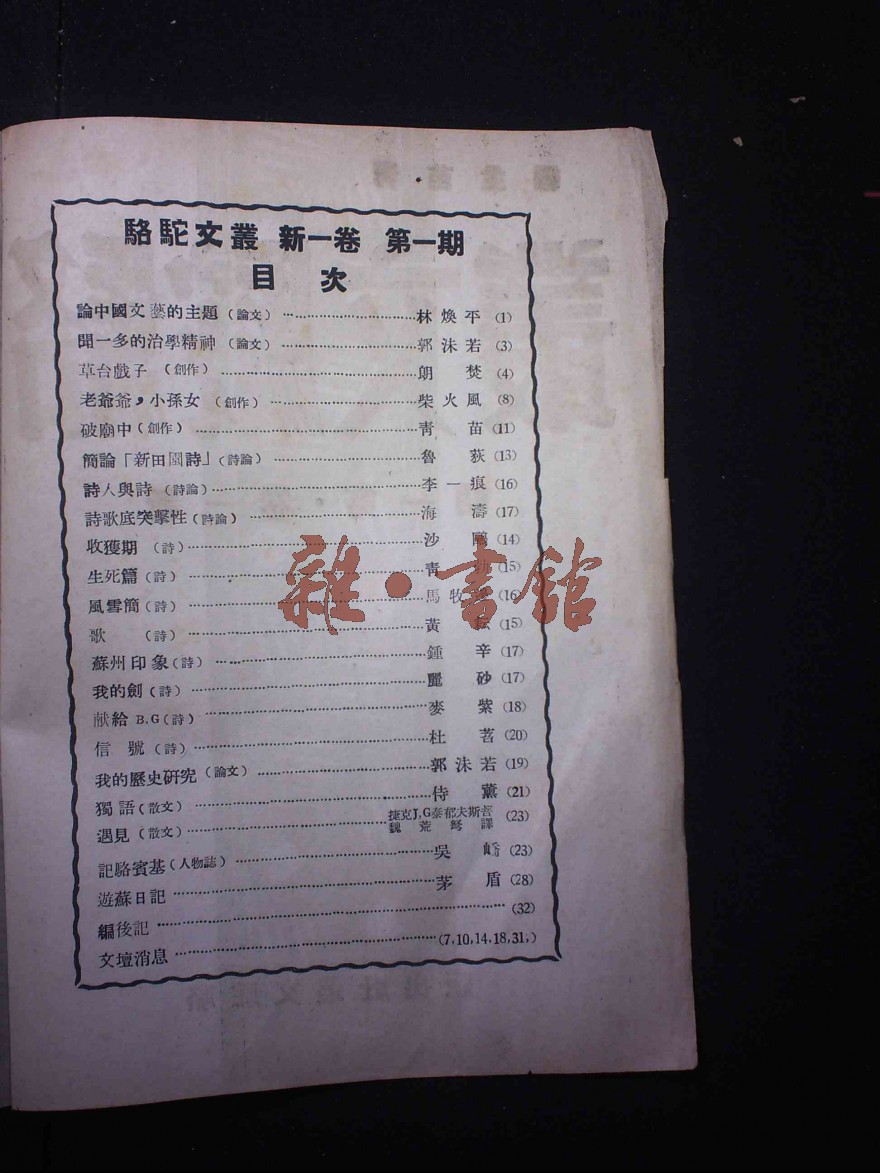 駱駝文叢 新一卷 第一期
目次
論中國文藝的主題(論文)林煥平(1)
聞一多的治學精神(論文)郭沫若(3)
草台戲子(創作)朗焚(4)
老爺爺,小孫女(創作)柴火風(8)
破廟中(創作)青苗(11)
簡論「新田園詩」(詩論)魯荻(13)
詩人與詩(詩論)李一痕(16)
詩歌底突擊性(詩論)海濤(17)
收獲期(詩)沙(14)
生死篇(詩)青(15)
風雪簡(詩)馬牧(16
歌(詩)黃(15)
蘇州印象(詩)鍾辛(17)
我的劍(詩)麗砂(17)
献給B.G(詩)麥紫(18)
信號(詩)杜茗(20)
我的歷史研究(論文)郭沫若(19)
獨語(散文)侍薰(21)
遇見(散文)捷克J.G泰郁夫斯(23)
魏荒弩譯
記駱賓基(人物誌)吳(23)
遊蘇日記茅盾(28)
編後記(32)
文壇消息(7,10,14,18,31,)
雜·書館